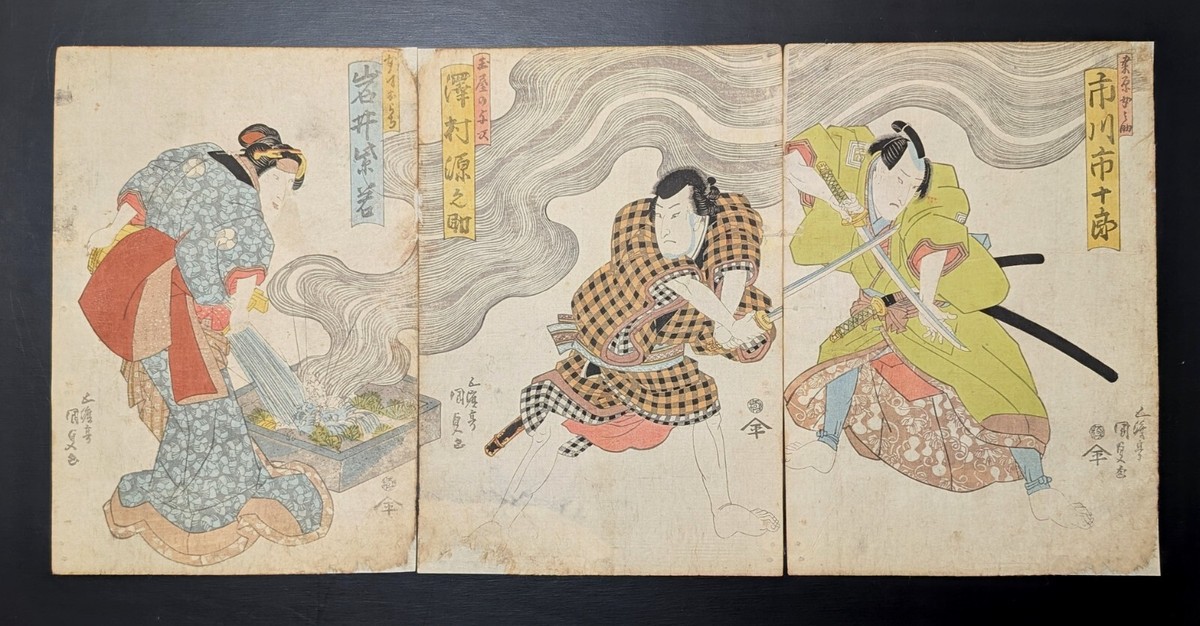 市川市十郎
五渡亭
国貞画
澤村源之助
玉屋の与次
五渡亭
国貞画
岩井紫若
五渡亭
国貞画